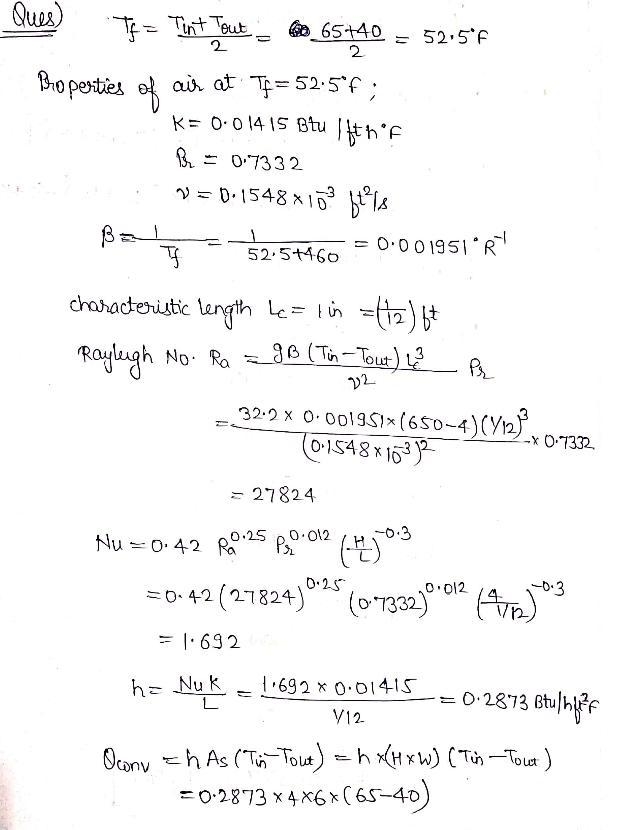 Ques) Tf = Tin + Tout / 2 = 65+40 / 2 = 52.5°F
Properties of air at Tf = 52.5°F ;
K = 0.01415 Btu / ft h °F
Pr = 0.7332
ν = 0.1548 × 10^-3 ft²/s
β = 1 / Tf = 1 / 52.5+460 = 0.001951 °R^-1
characteristic length Lc = 1 in = (1/12) ft
Rayleigh No. Ra = gβ (Tin - Tout) Lc^3 / ν2 Pr
= 32.2 × 0.001951 × (650-4) (1/12)^3 / (0.1548 × 10^-3)^2 × 0.7332
= 27824
Nu = 0.42 Ra^0.25 Pr^0.012 (H/L)^-0.3
= 0.42 (27824)^0.25 (0.7332)^0.012 (4 / 1/12)^-0.3
= 1.692
h = Nu K / L = 1.692 × 0.01415 / 1/12 = 0.2873 Btu/hft²°F
Qconv = h As (Tin - Tout) = h × (H×W) (Tin - Tout)
= 0.2873 × 4 × 6 × (65-40)